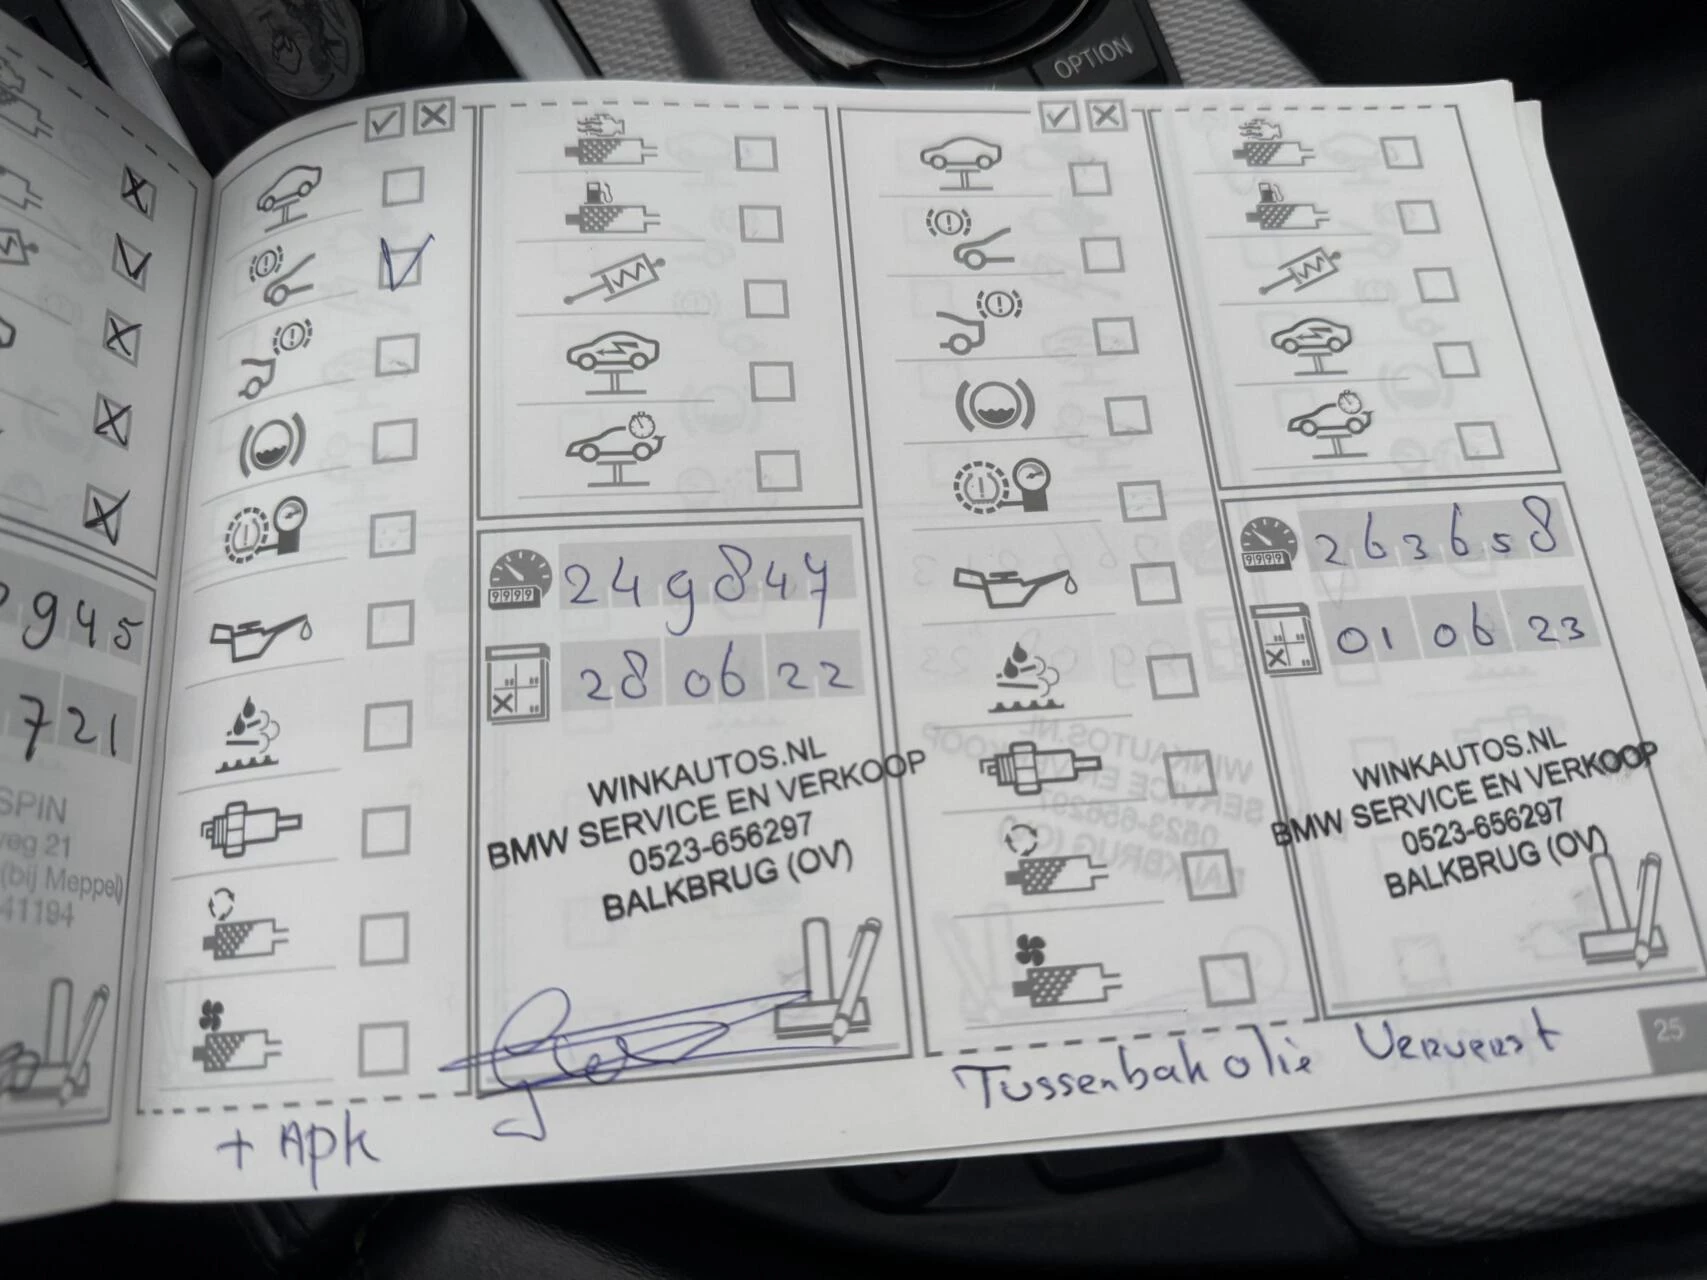 OPTION
945
721
SPIN
weg 21
(bij Meppel)
41194
9999
249847
28 06 22
WINKAUTOS.NL
BMW SERVICE EN VERKOOP
0523-656297
BALKBRUG (OV)
+ Apk
9999
263658
01 06 23
WINKAUTOS.NL
BMW SERVICE EN VERKOOP
0523-656297
BALKBRUG (OV)
Tussenbak olie Ververst
25